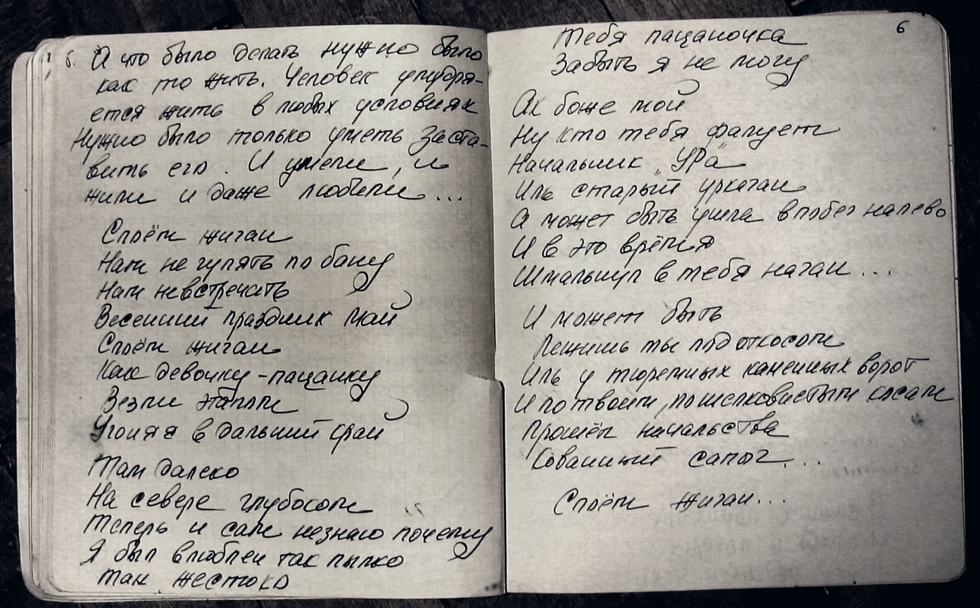 А что было делать нужно было
как то жить. Человек умудря-
ется жить в любых условиях
Нужно было только уметь заста-
вить его. И умели, и
жили и даже любили...
Споём жиган
Нам не гулять по бану
Нам невстречать
Весенний праздник май
Споём жиган
Как девочку-пацанку
Везли этапом
Угоняя в дальний край
Там далеко
На севере глубоком
Теперь и сам незнаю почему
Я был влюблен так пылко
так жестоко
6
Тебя пацаночка
Забыть я не могу
Ах боже мой
Ну кто тебя фалует
Начальник "УРа"
Иль старый уркаган
А может быть ушла в побег налево
И в это время
Шмальнул в тебя наган...
И может быть
Лежишь ты под откосом
Иль у тюремных каменных ворот
И по твоим, по шелковистым косам
Прошёл начальства
Кованный сапог...
Споём жиган...